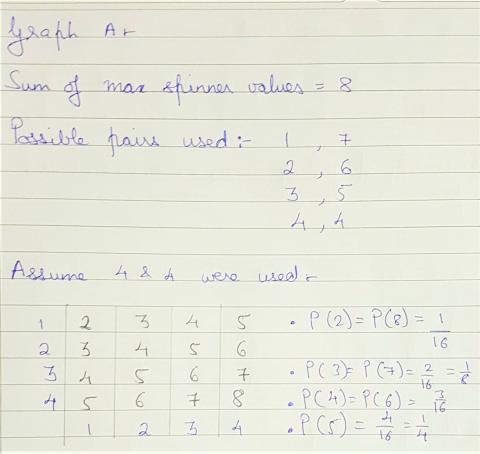 Graph A :-
Sum of max spinner values = 8
Possible pairs used :- 1 , 7
2 , 6
3 , 5
4 , 4
Assume 4 & 4 were used :-
1 2 3 4 5 • P(2) = P(8) = 1/16
2 3 4 5 6
3 4 5 6 7 • P(3) = P(7) = 2/16 = 1/8
4 5 6 7 8 • P(4) = P(6) = 3/16
1 2 3 4 • P(5) = 4/16 = 1/4